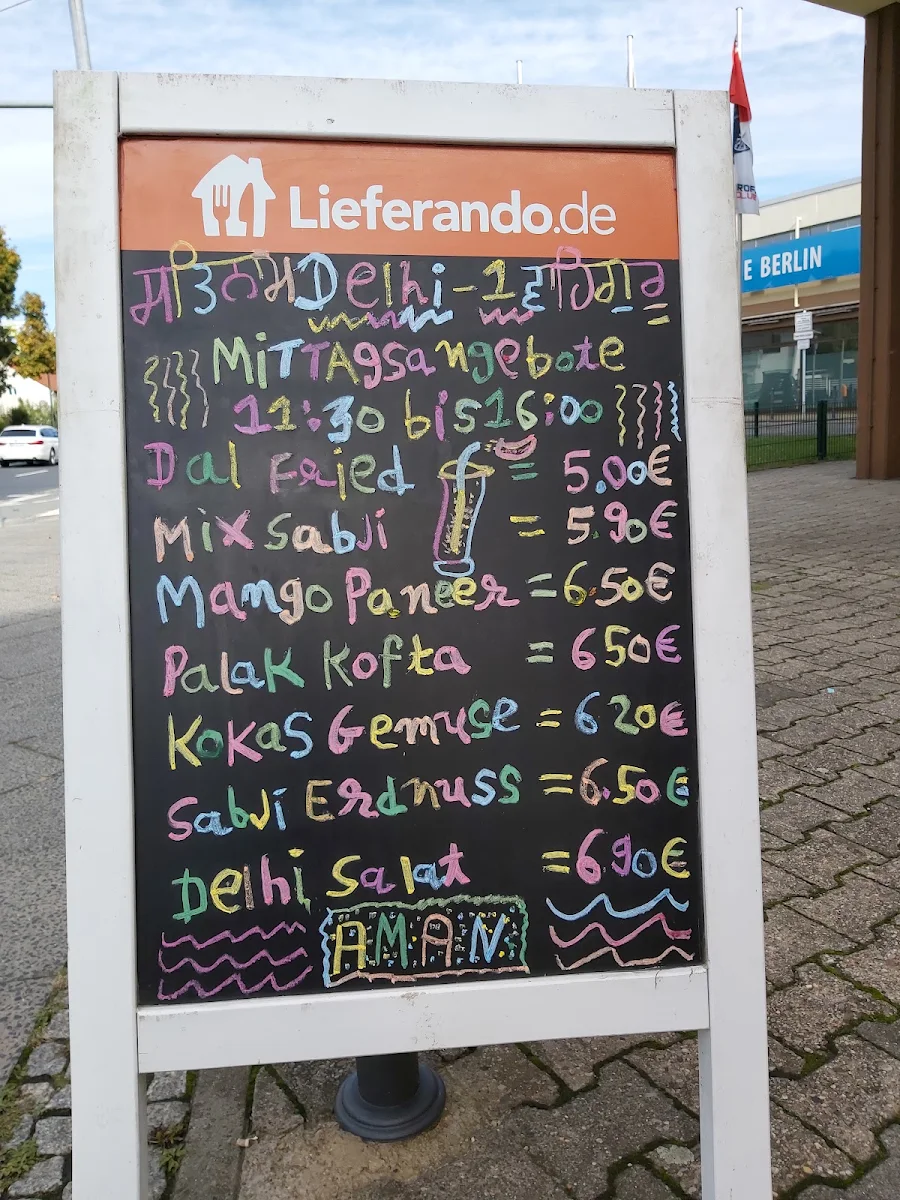 Lieferando.de
ਸਤਿਨਾਮ Delhi-1 ਵਾਹਿਗੁਰੂ
MiTTAgsangebote
11:30 bis 16:00
Dal Fried = 5.00€
Mix sabji = 5.90€
Mango Paneer = 6.50€
Palak Kofta = 650€
Kokas Gemuse = 620€
Sabji Erdnuss = 6.50€
Delhi Salat = 690€
AMAN
E BERLIN